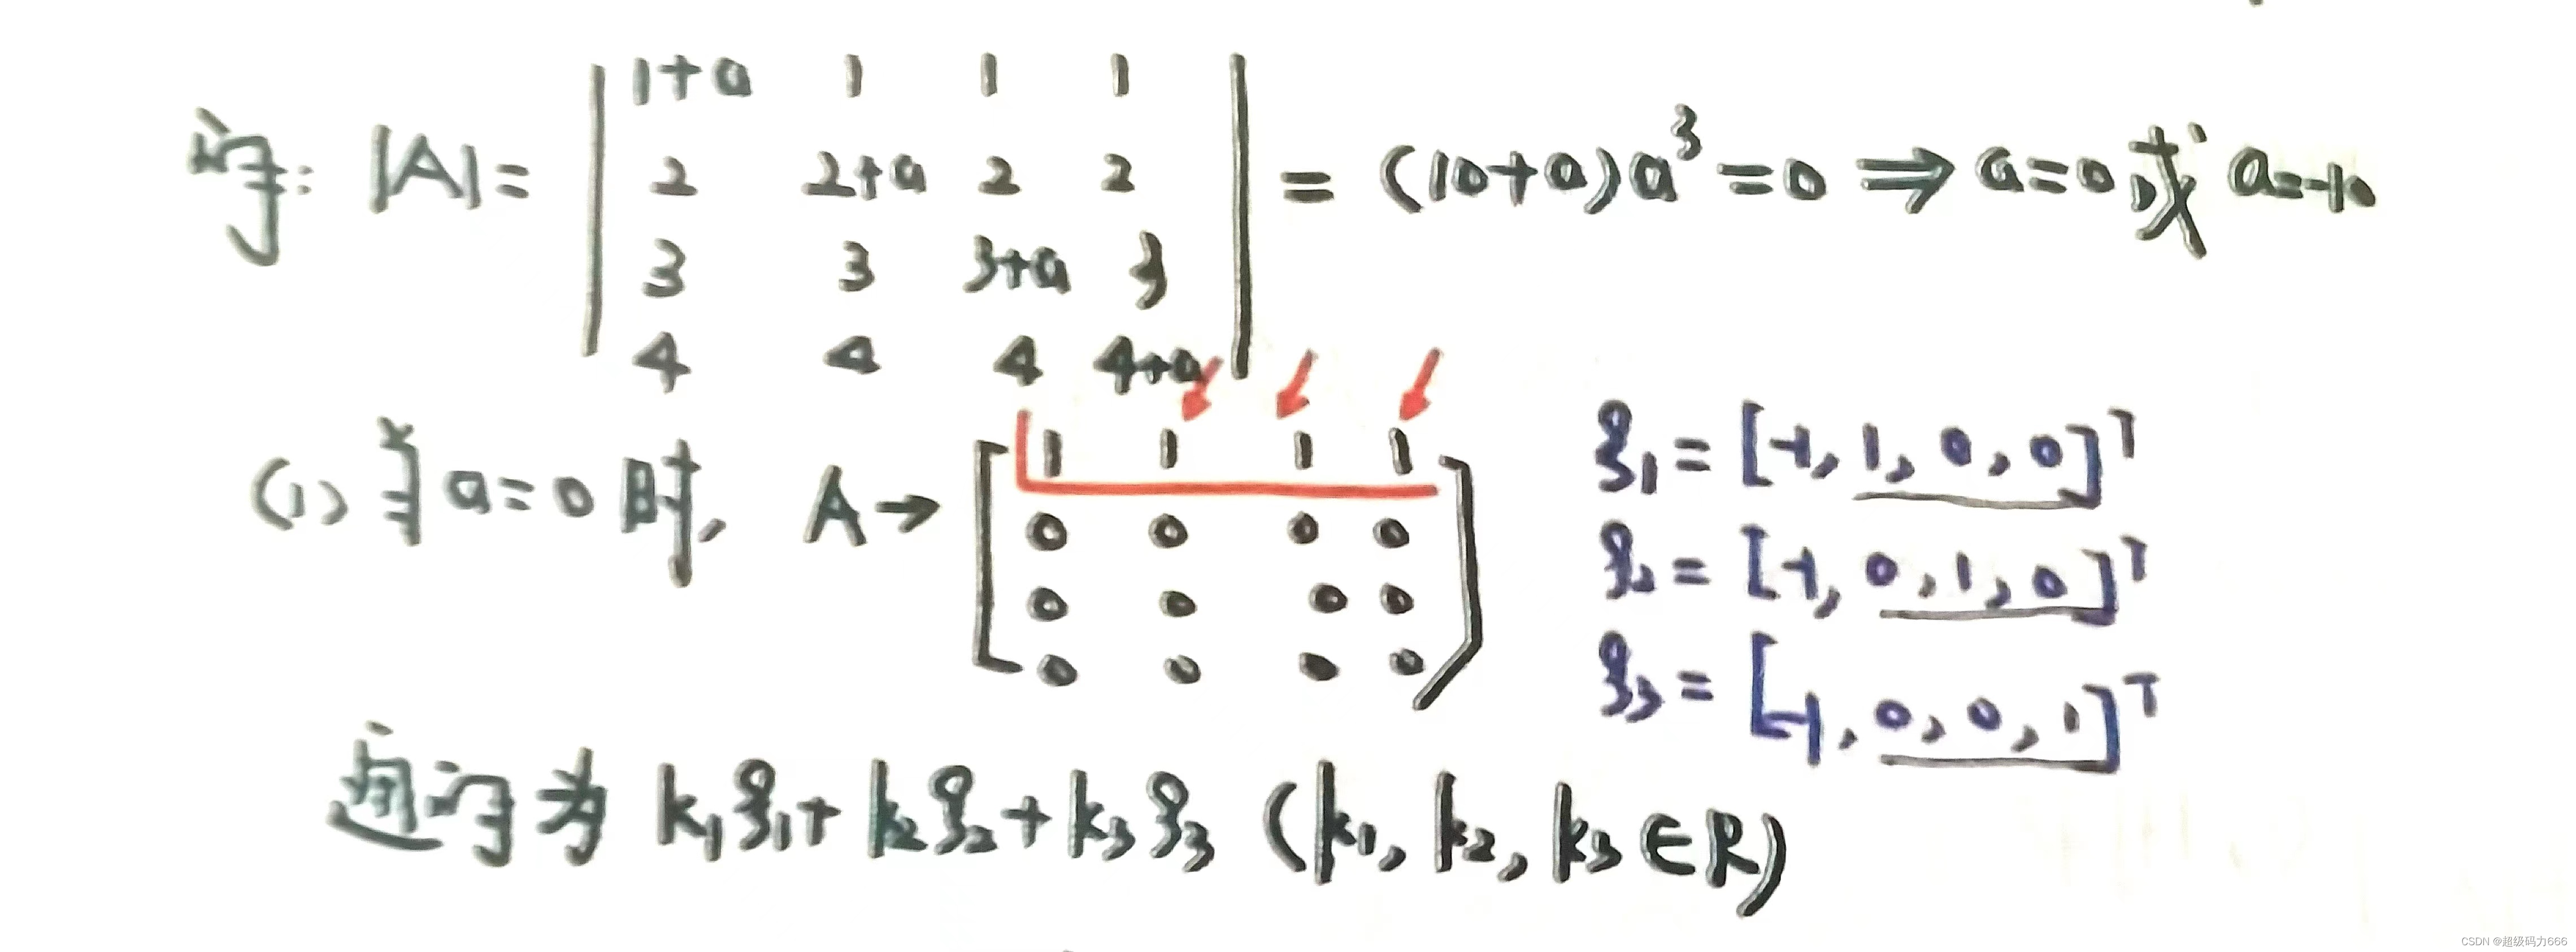 解: |A|= | 1+a 1 1 1 |
| 2 2+a 2 2 | = (10+a)a³=0 ⇒ a=0 或 a=-10
| 3 3 3+a 3 |
| 4 4 4 4+a |
(1) 当a=0时, A→ [ 1 1 1 1 ]
[ 0 0 0 0 ]
[ 0 0 0 0 ]
[ 0 0 0 0 ]
ξ₁=[-1, 1, 0, 0]ᵀ
ξ₂=[-1, 0, 1, 0]ᵀ
ξ₃=[-1, 0, 0, 1]ᵀ
通解为 k₁ξ₁+k₂ξ₂+k₃ξ₃ (k₁, k₂, k₃∈R)
CSDN @超级码力666